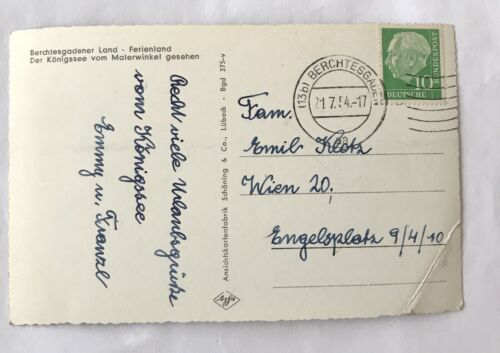 Berchtesgadener Land - Ferienland
Der Königssee vom Malerwinkel gesehen
Recht viele Urlaubsgrüße
vom Königssee
Emmy u. Franzl
Ansichtskartenfabrik Schöning & Co., Lübeck · Bgd 375-v
Agfa
(13b) BERCHTESGADEN
21.7.54.-17
10
DEUTSCHE
BUNDESPOST
Fam.
Emil Klotz
Wien 20,
Engelsplatz 9/4/10